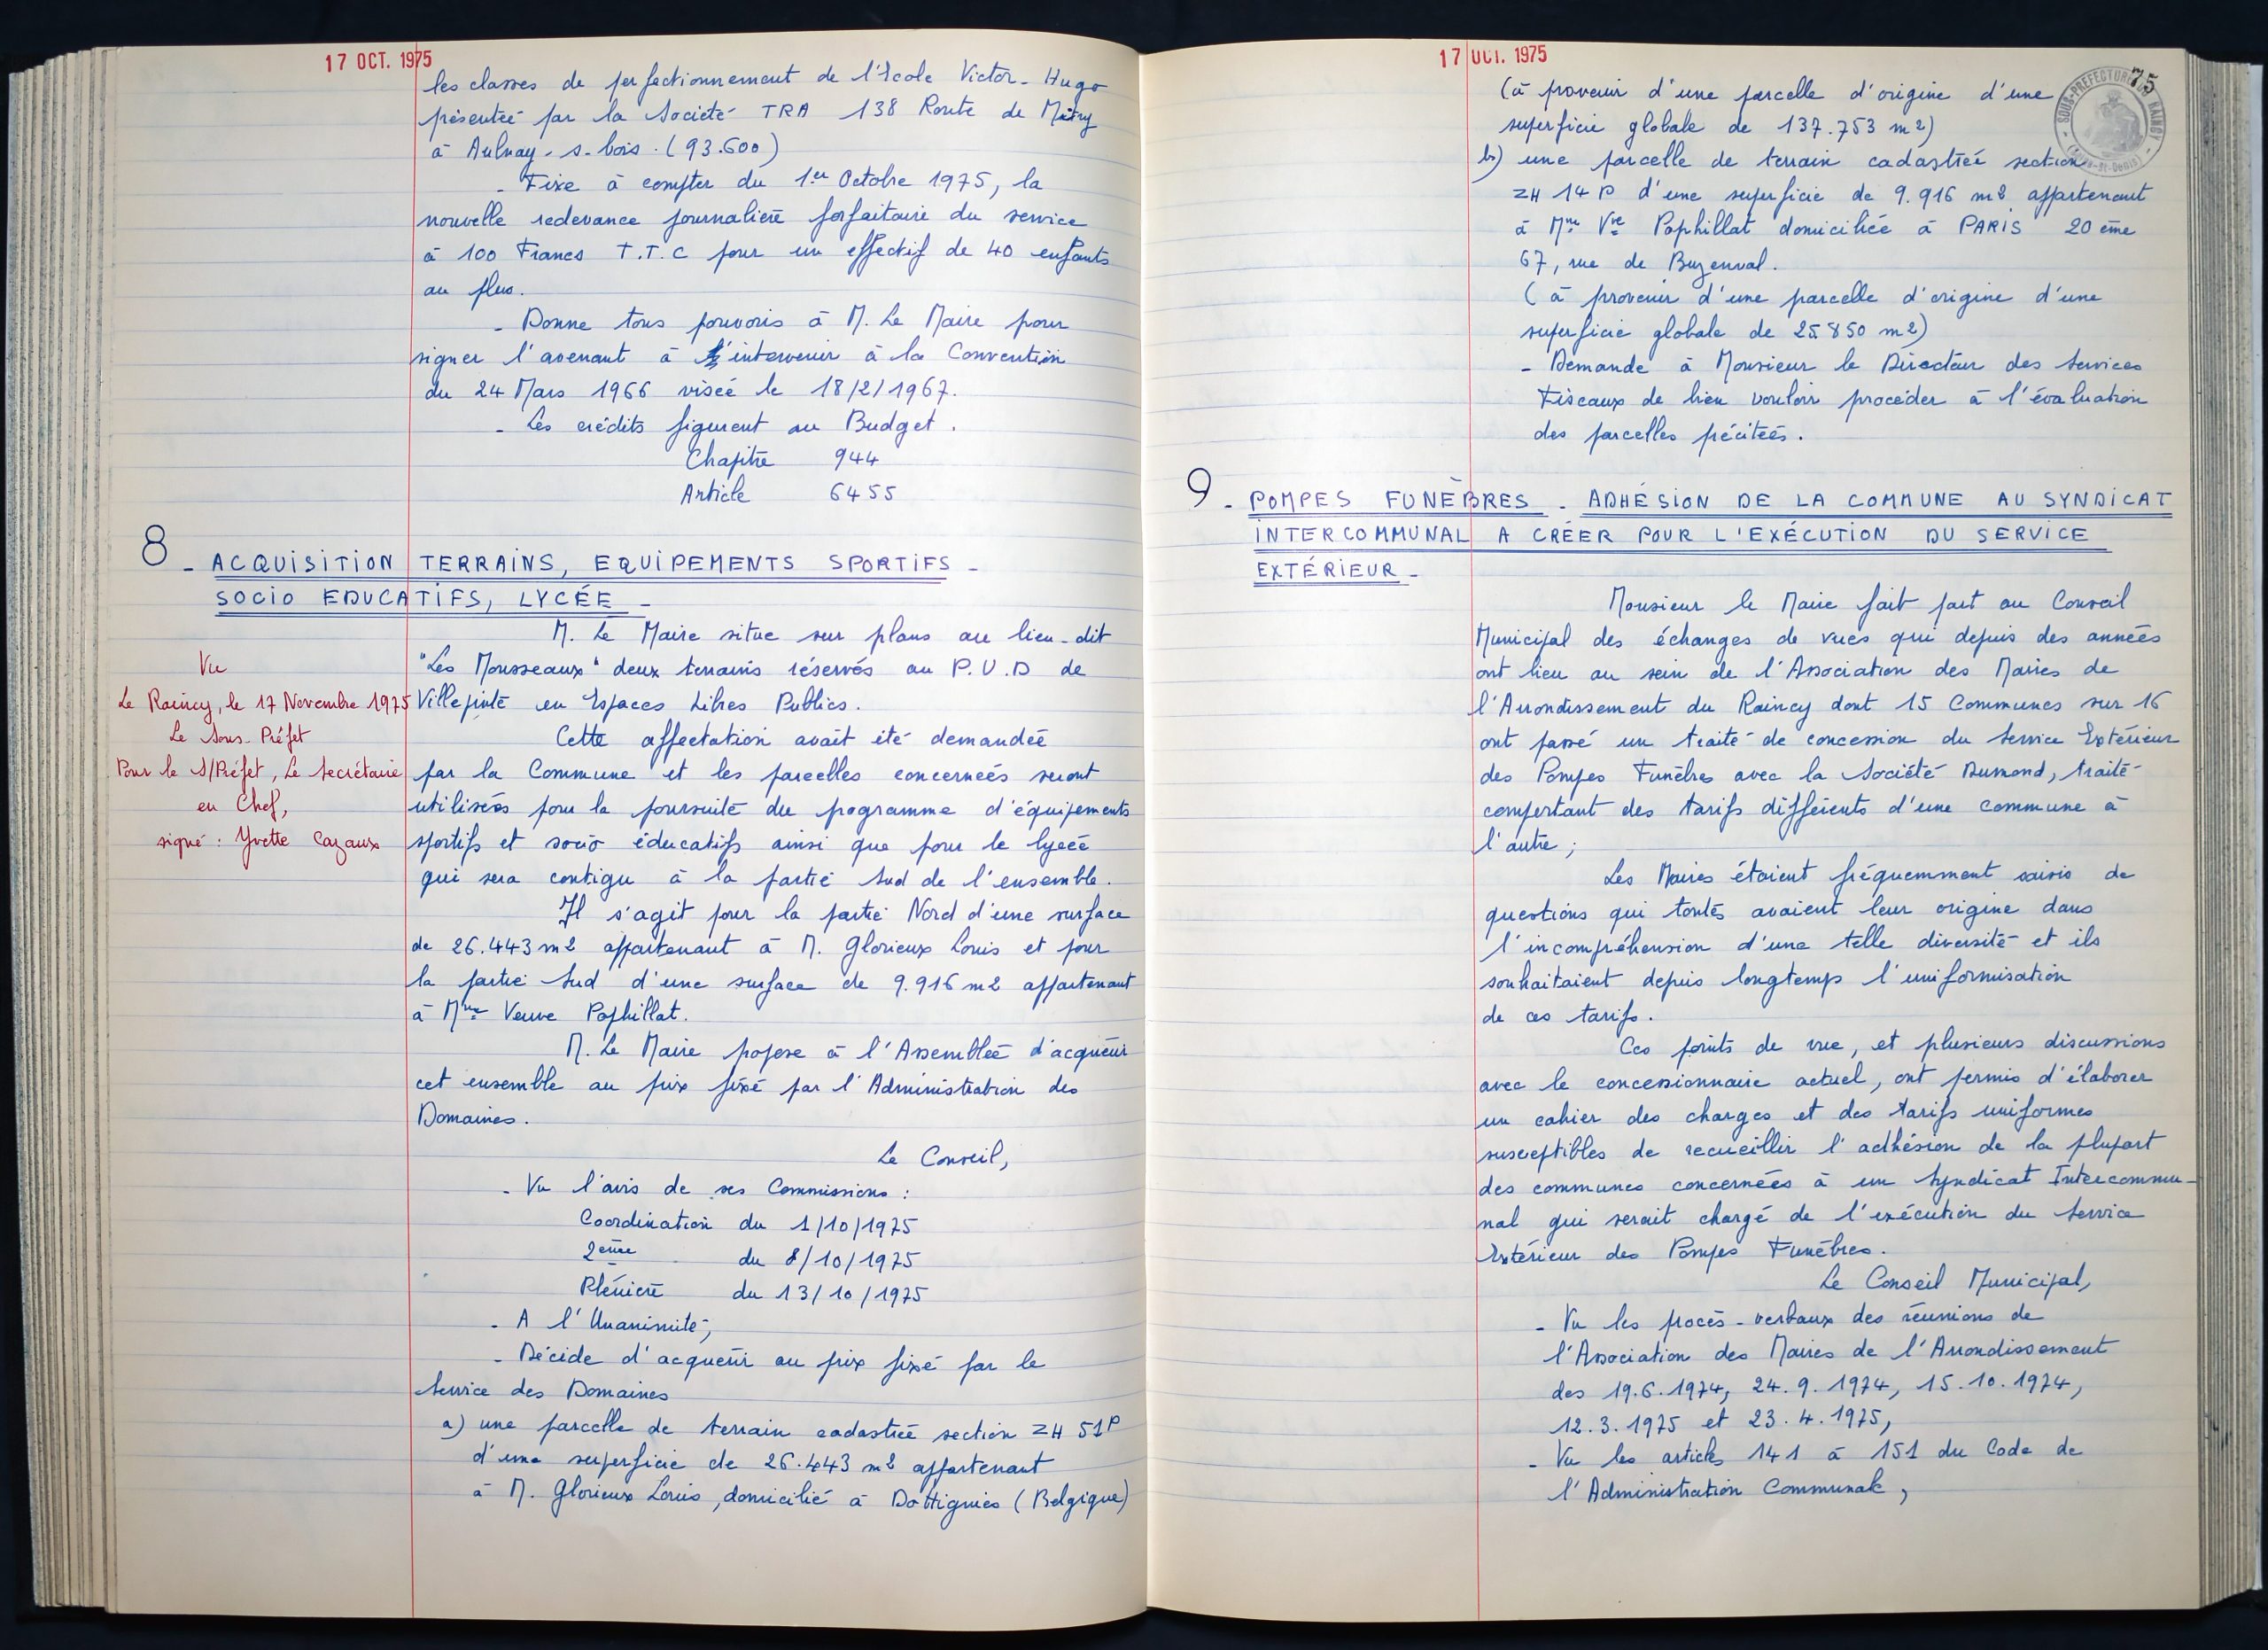 17 OCT. 1975
les classes de perfectionnement de l'école Victor-Hugo
présentée par la Société TRA 138 Route de Mitry
à Aulnay-s-bois. (93.600)
- Fixe à compter du 1er Octobre 1975, la
nouvelle redevance journalière forfaitaire du service
à 100 Francs T.T.C pour un effectif de 40 enfants
au plus.
- Donne tous pouvoirs à M. Le Maire pour
signer l'avenant à intervenir à la Convention
du 24 Mars 1966 visée le 18/2/1967.
- Les crédits figurent au Budget.
Chapitre 944
Article 6455
8 - ACQUISITION TERRAINS, EQUIPEMENTS SPORTIFS -
SOCIO EDUCATIFS, LYCÉE -
M. Le Maire situe sur plans au lieu-dit
"Les Mousseaux" deux terrains réservés au P.U.D de
Villepinte en Espaces Libres Publics.
Cette affectation avait été demandée
par la Commune et les parcelles concernées seront
utilisées pour la poursuite du programme d'équipements
sportifs et socio éducatifs ainsi que pour le lycée
qui sera contigu à la partie Sud de l'ensemble.
Il s'agit pour la partie Nord d'une surface
de 26.443 m2 appartenant à M. Glorieux Louis et pour
la partie Sud d'une surface de 9.916 m2 appartenant
à Mme Veuve Pophillat.
M. Le Maire propose à l'Assemblée d'acquérir
cet ensemble au prix fixé par l'Administration des
Domaines.
Le Conseil,
- Vu l'avis de ses Commissions :
Coordination du 1/10/1975
2ème du 8/10/1975
Plénière du 13/10/1975
- A l'Unanimité,
- Décide d'acquérir au prix fixé par le
Service des Domaines
a) une parcelle de terrain cadastrée section ZH 51P
d'une superficie de 26.443 m2 appartenant
à M. Glorieux Louis, domicilié à Dottignies (Belgique)
Vu
Le Raincy, le 17 Novembre 1975
Le Sous-Préfet
Pour le S/Préfet, Le Secrétaire
en Chef,
signé : Yvette Cazaux
17 OCT. 1975
75
SOUS-PREFECTURE DU RAINCY
(Seine-St-Denis)
(à provenir d'une parcelle d'origine d'une
superficie globale de 137.753 m2)
b) une parcelle de terrain cadastrée section
ZH 14 P d'une superficie de 9.916 m2 appartenant
à Mme Vve Pophillat domiciliée à PARIS 20 ème
67, rue de Buzenval.
(à provenir d'une parcelle d'origine d'une
superficie globale de 25.850 m2)
- Demande à Monsieur le Directeur des Services
Fiscaux de bien vouloir procéder à l'évaluation
des parcelles précitées.
9 - POMPES FUNÈBRES - ADHÉSION DE LA COMMUNE AU SYNDICAT
INTERCOMMUNAL A CRÉER POUR L'EXÉCUTION DU SERVICE
EXTÉRIEUR -
Monsieur le Maire fait part au Conseil
Municipal des échanges de vues qui depuis des années
ont lieu au sein de l'Association des Maires de
l'Arrondissement du Raincy dont 15 Communes sur 16
ont passé un traité de concession du Service Extérieur
des Pompes Funèbres avec la Société Dumond, traité
comportant des tarifs différents d'une commune à
l'autre ;
Les Maires étaient fréquemment saisis de
questions qui toutes avaient leur origine dans
l'incompréhension d'une telle diversité et ils
souhaitaient depuis longtemps l'uniformisation
de ces tarifs.
Ces points de vue, et plusieurs discussions
avec le concessionnaire actuel, ont permis d'élaborer
un cahier des charges et des tarifs uniformes
susceptibles de recueillir l'adhésion de la plupart
des communes concernées à un Syndicat Intercommu-
nal qui serait chargé de l'exécution du Service
Extérieur des Pompes Funèbres.
Le Conseil Municipal,
- Vu les procès-verbaux des réunions de
l'Association des Maires de l'Arrondissement
des 19.6.1974, 24.9.1974, 15.10.1974,
12.3.1975 et 23.4.1975,
- Vu les articles 141 à 151 du Code de
l'Administration Communale,